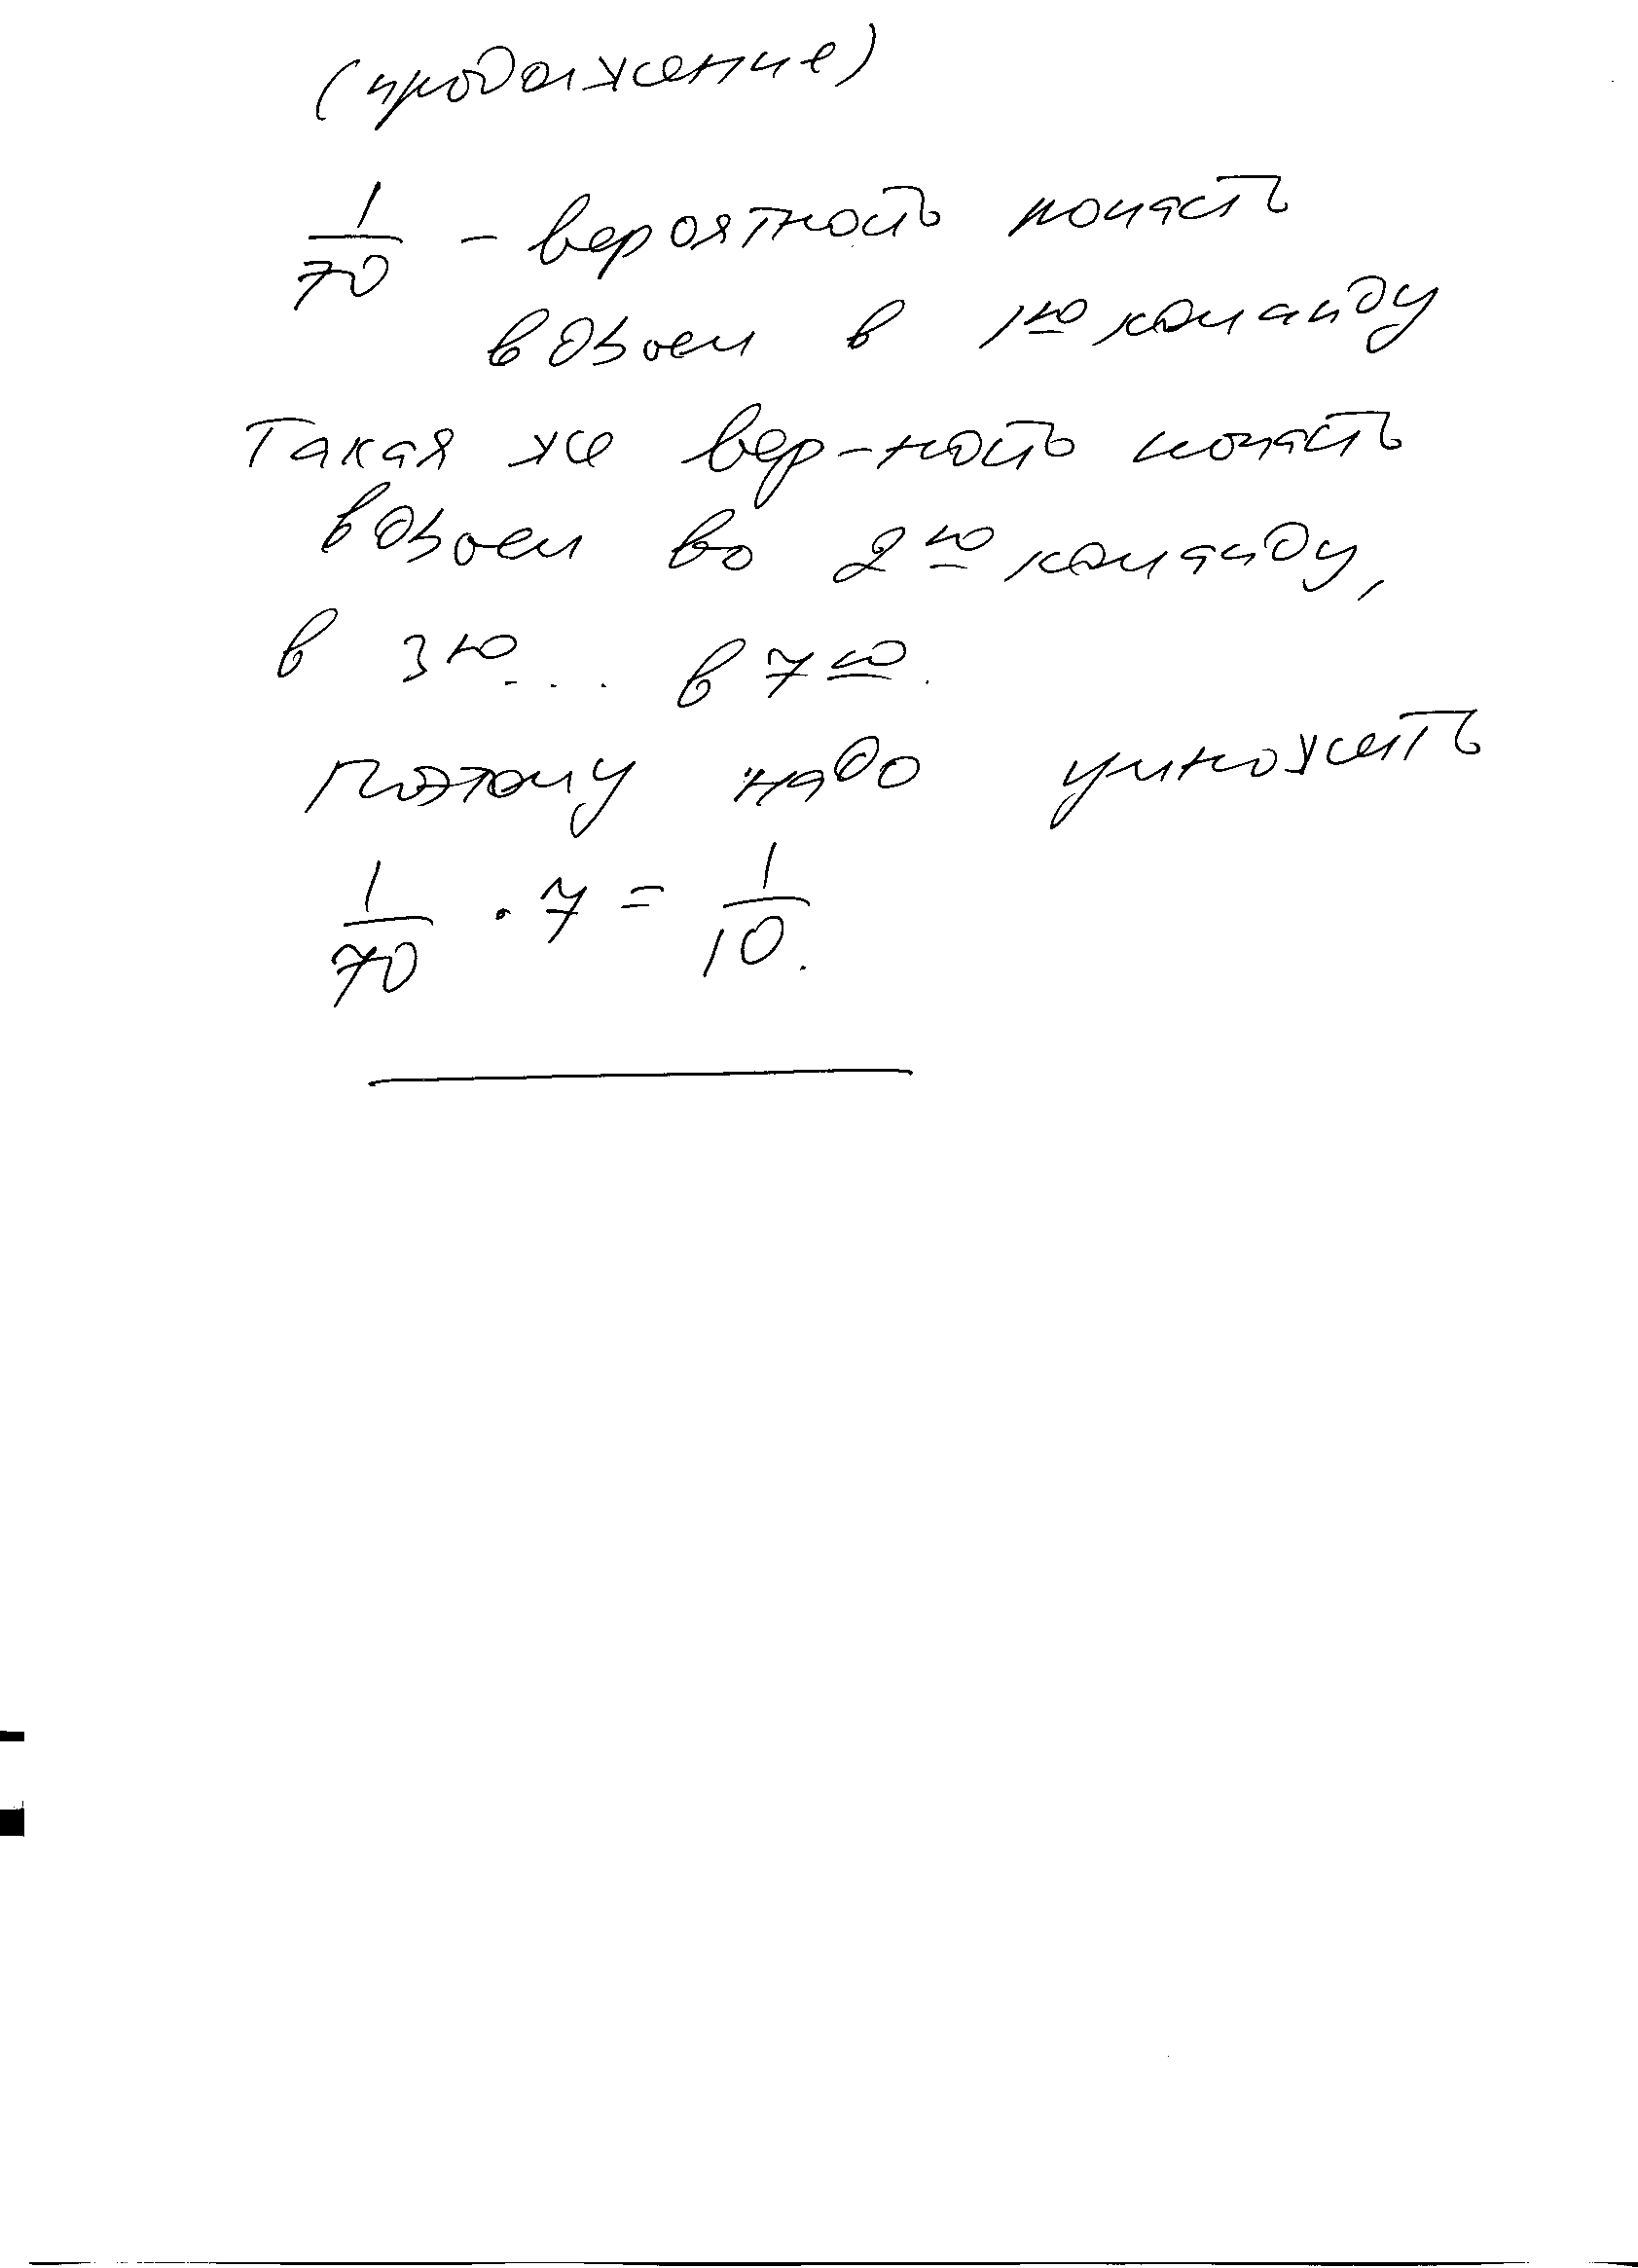 (продолжение)
1/70 - вероятность попасть
вдвоем в 1ю команду
Такая же вер-ность попасть
вдвоем во 2ю команду,
в 3ю... в 7ю.
Поэтому надо умножить
1/70 · 7 = 1/10.